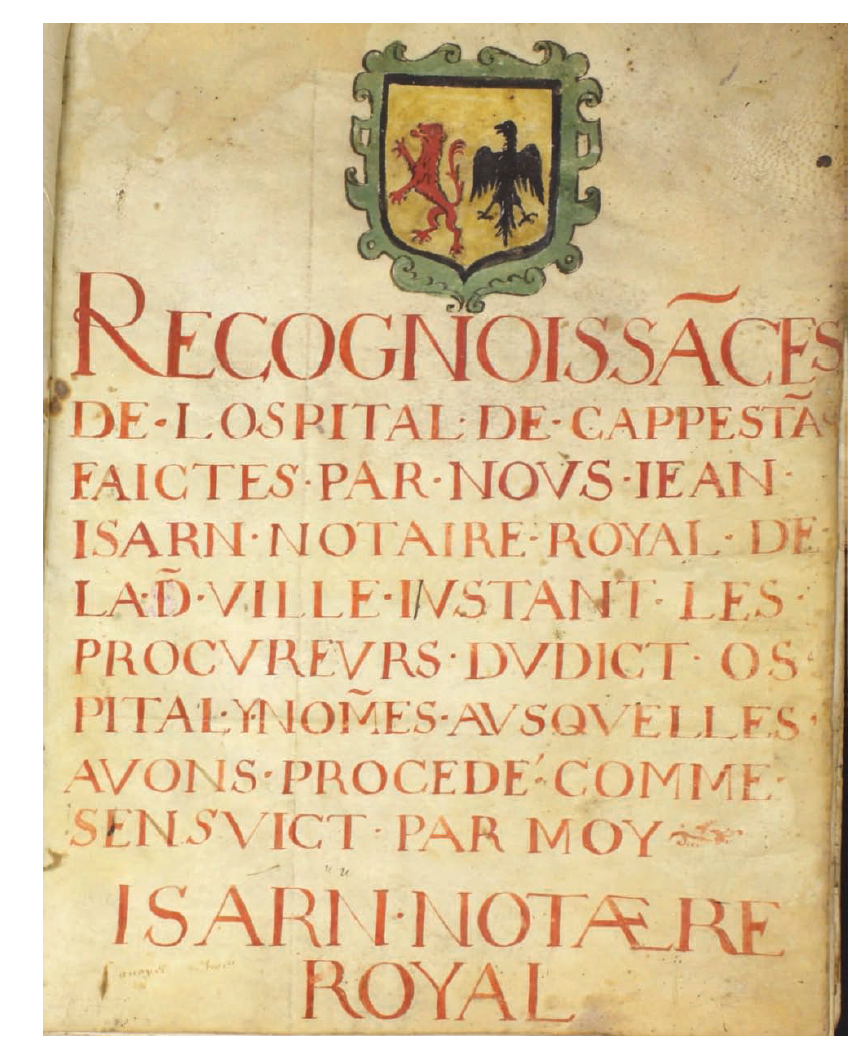 RECOGNOISSÃCES
DE·LOSPITAL·DE·CAPPESTÃ
FAICTES·PAR·NOVS·IEAN·
ISARN·NOTAIRE·ROYAL·DE·
LA·D̃·VILLE·INSTANT·LES·
PROCVREVRS·DVDICT·OS
PITAL·Y·NOM̃ES·AVSQVELLES·
AVONS·PROCEDÉ·COMME·
SENSVICT·PAR MOY
ISARN·NOTÆRE
ROYAL